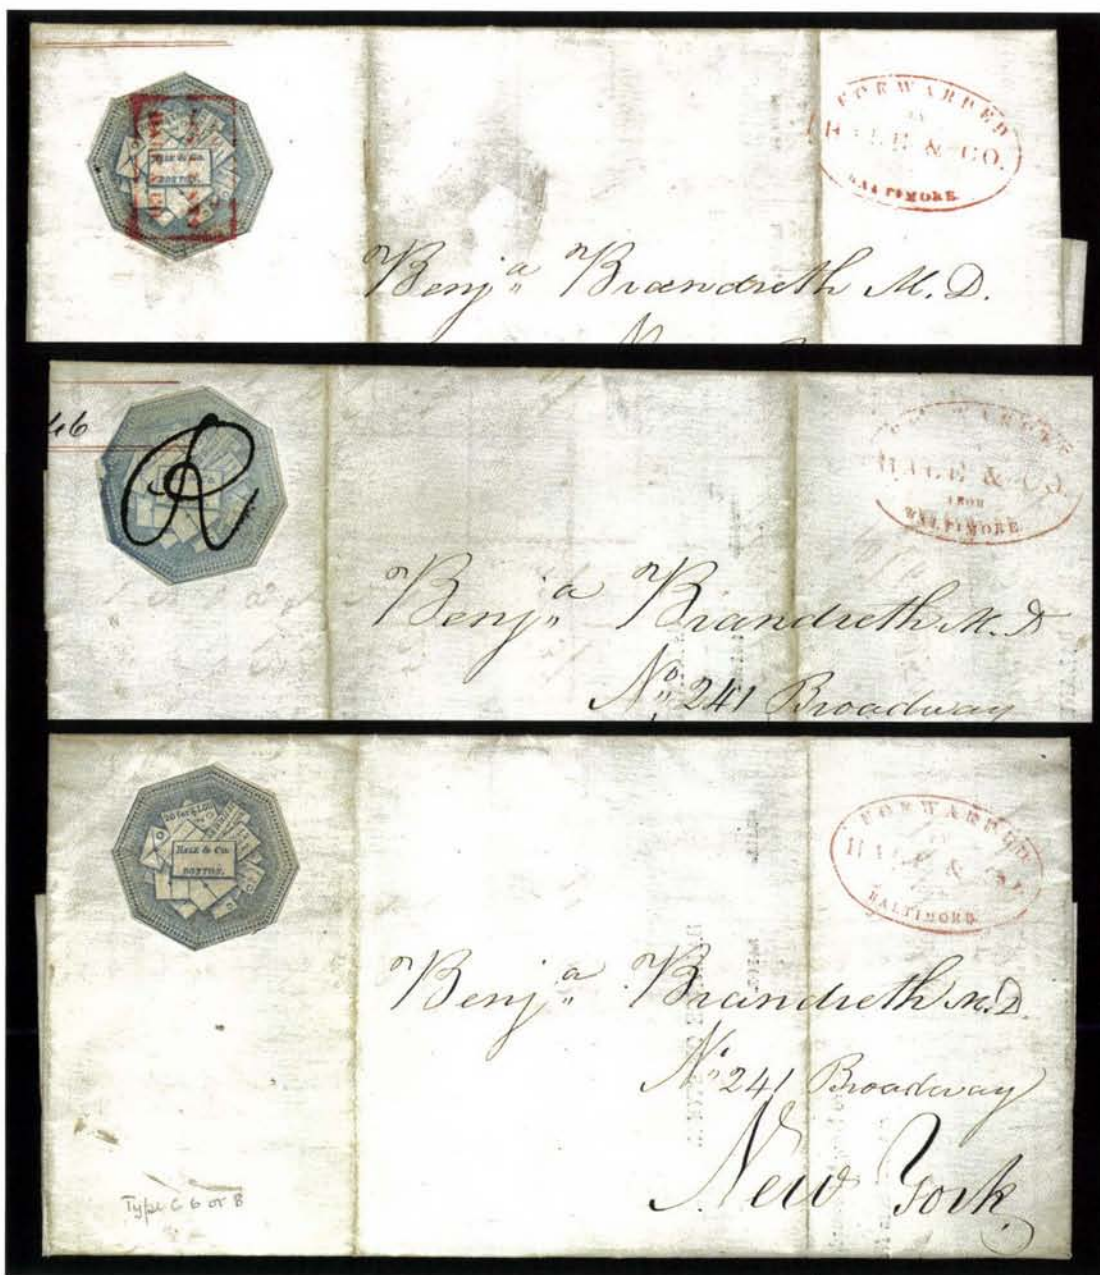 HALE & Co.
BOSTON.
FORWARDED
BY
HALE & CO.
BALTIMORE
Benjª Brandreth M.D.
46
HALE & CO.
FROM
BALTIMORE
Benjª Brandreth M.D
No 241 Broadway
20 for $1.00
HALE & Co.
BOSTON.
FORWARDED
BY
HALE & CO.
BALTIMORE
Benjª Brandreth M.D.
No 241 Broadway
New York
Type C 6 or B